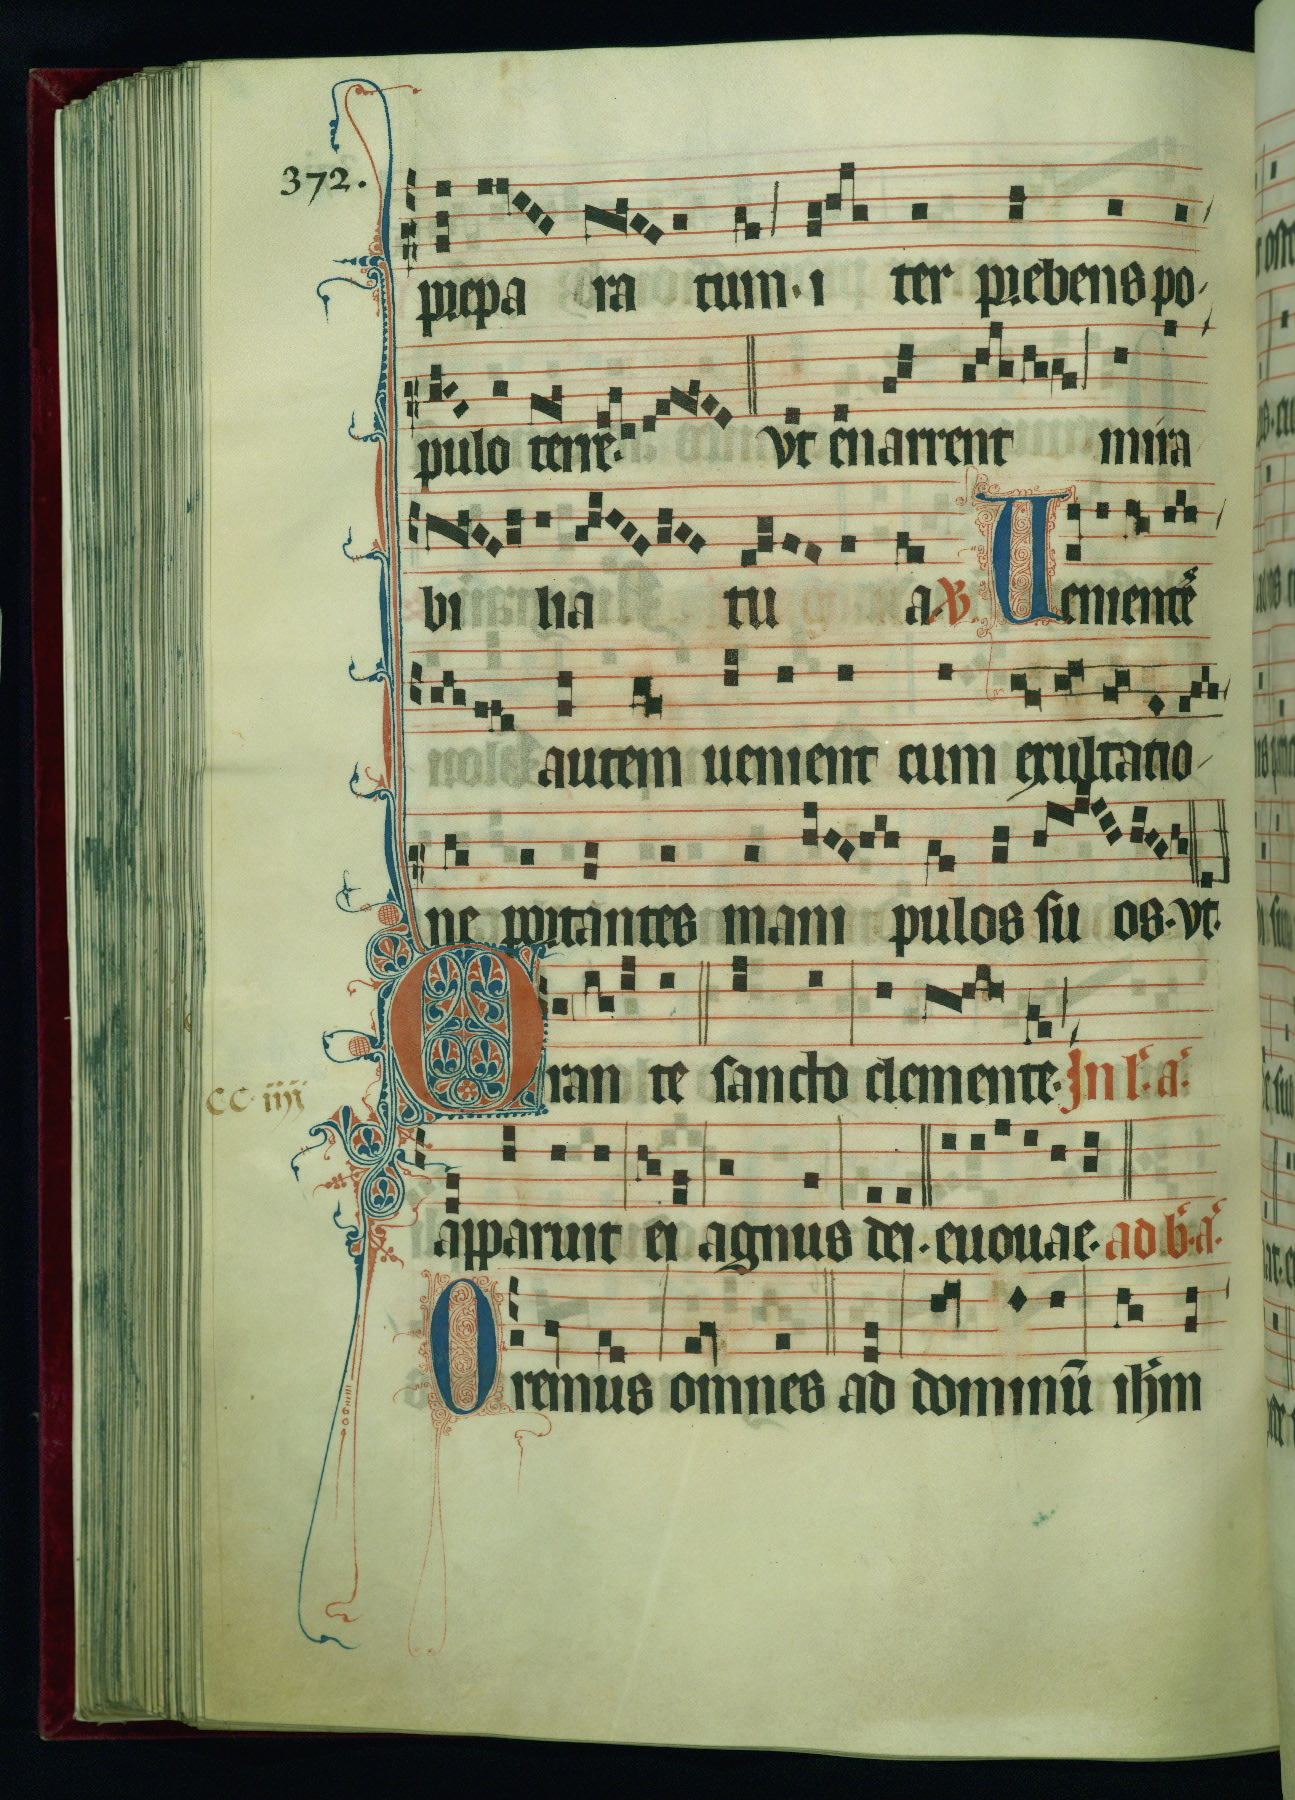 372.
prepa ra tum · i ter prebens po-
pulo terre · vt enarrent mira
bi lia tu a. V. Uenientē
autem uenient cum exultatio-
ne portantes mani pulos su os · vt ·
Oran te sancto clemente · In l. a.
CC · iiij
apparuit ei agnus dei · euouae · ad b. a.
Oremus omnes ad dominū ihm